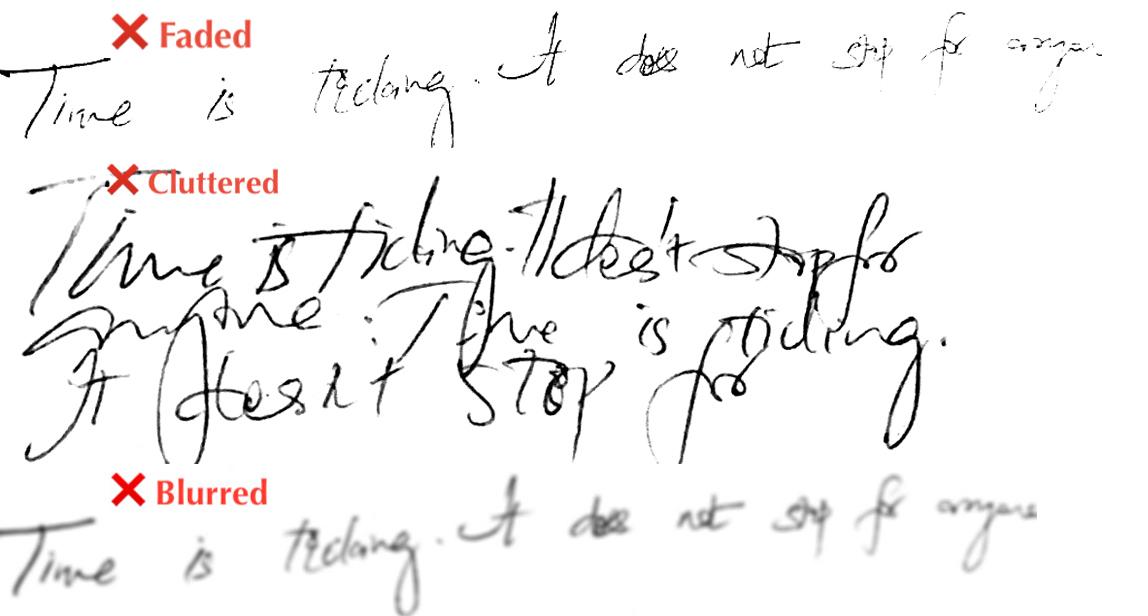 Faded
Time is ticking. It does not stop for anyone
Cluttered
Time is ticking. It doesn't stop for
anyone. Time is ticking.
It doesn't stop for
Blurred
Time is ticking. It does not stop for anyone